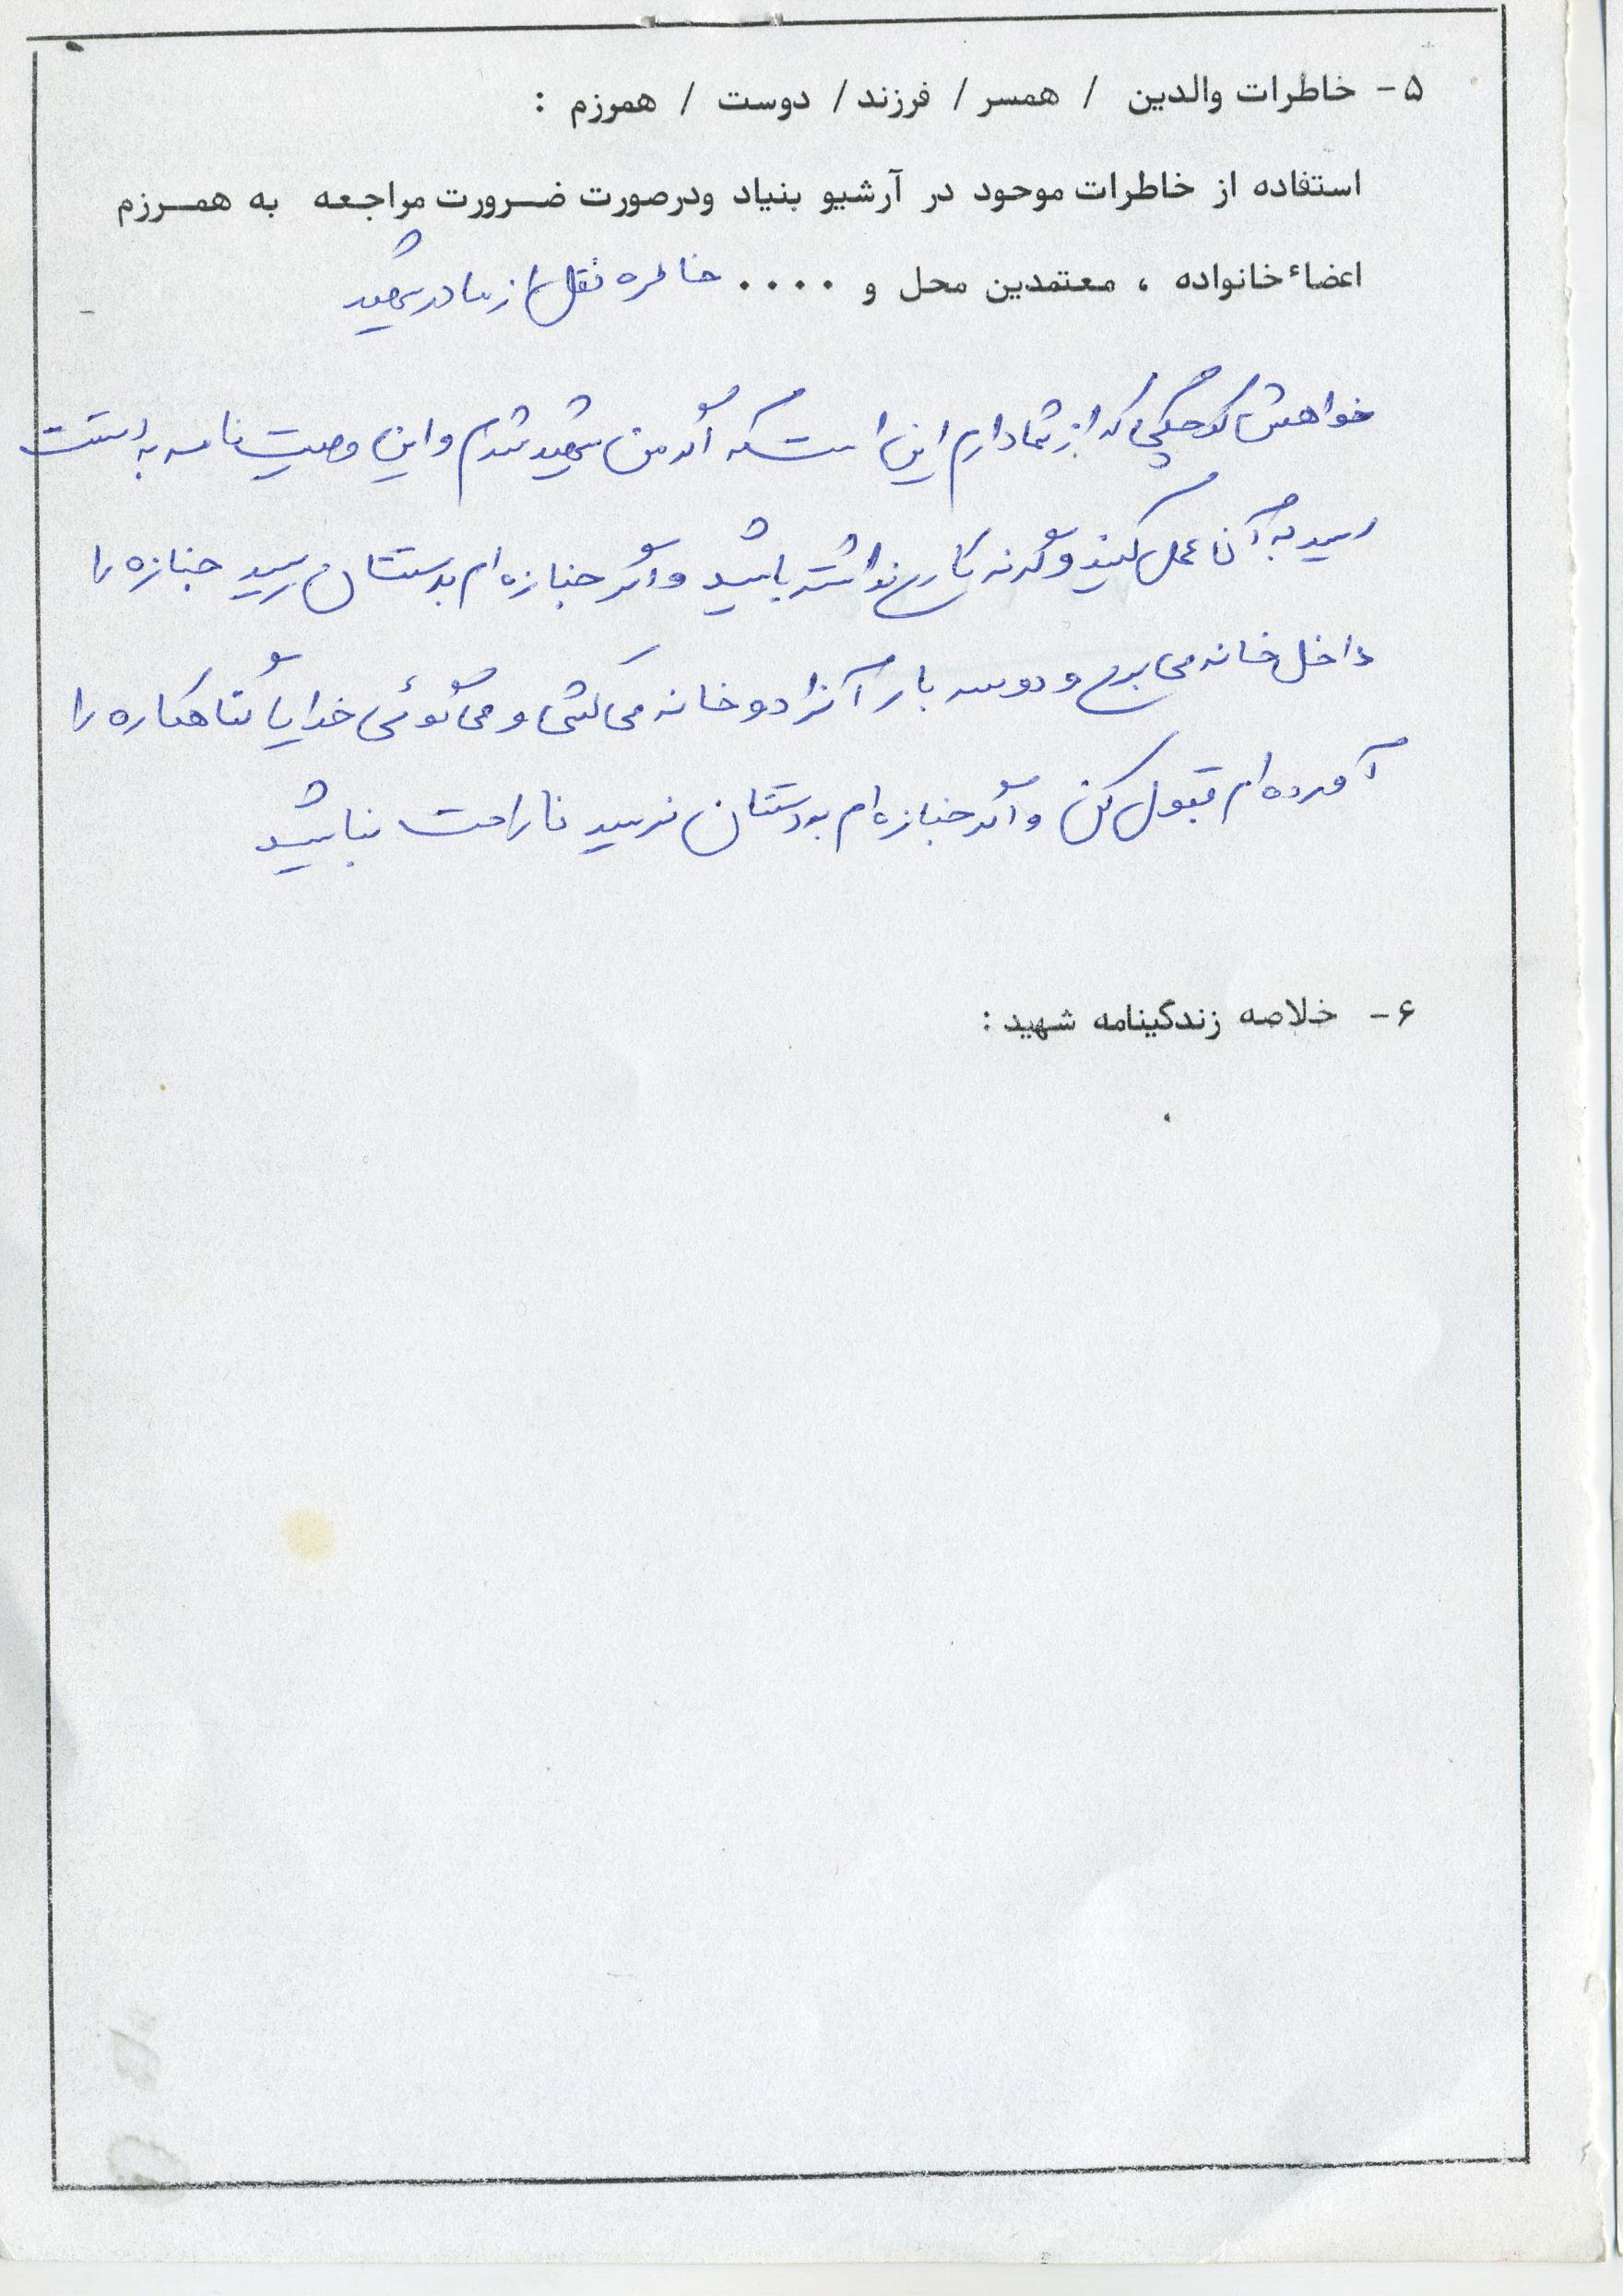 ۵- خاطرات والدین / همسر / فرزند / دوست / همرزم :
استفاده از خاطرات موحود در آرشیو بنیاد ودرصورت ضرورت مراجعه به همرزم
اعضاء خانواده ، معتمدین محل و .... خاطره نقل از مادر شهید
خواهش کوچکی که از شما دارم این است که اگر من شهید شدم و این وصیت نامه به دستت
رسید به آن عمل کنید وگرنه کاری نداشته باشید و اگر جنازه ام بدستتان رسید جنازه را
داخل خانه می بری و دوسه بار آنرا دو خانه می کشی و می گوئی خدایا گناهکاره را
آورده ام قبول کن و اگر جنازه ام بدستتان نرسید ناراحت نباشید
۶- خلاصه زندگینامه شهید :